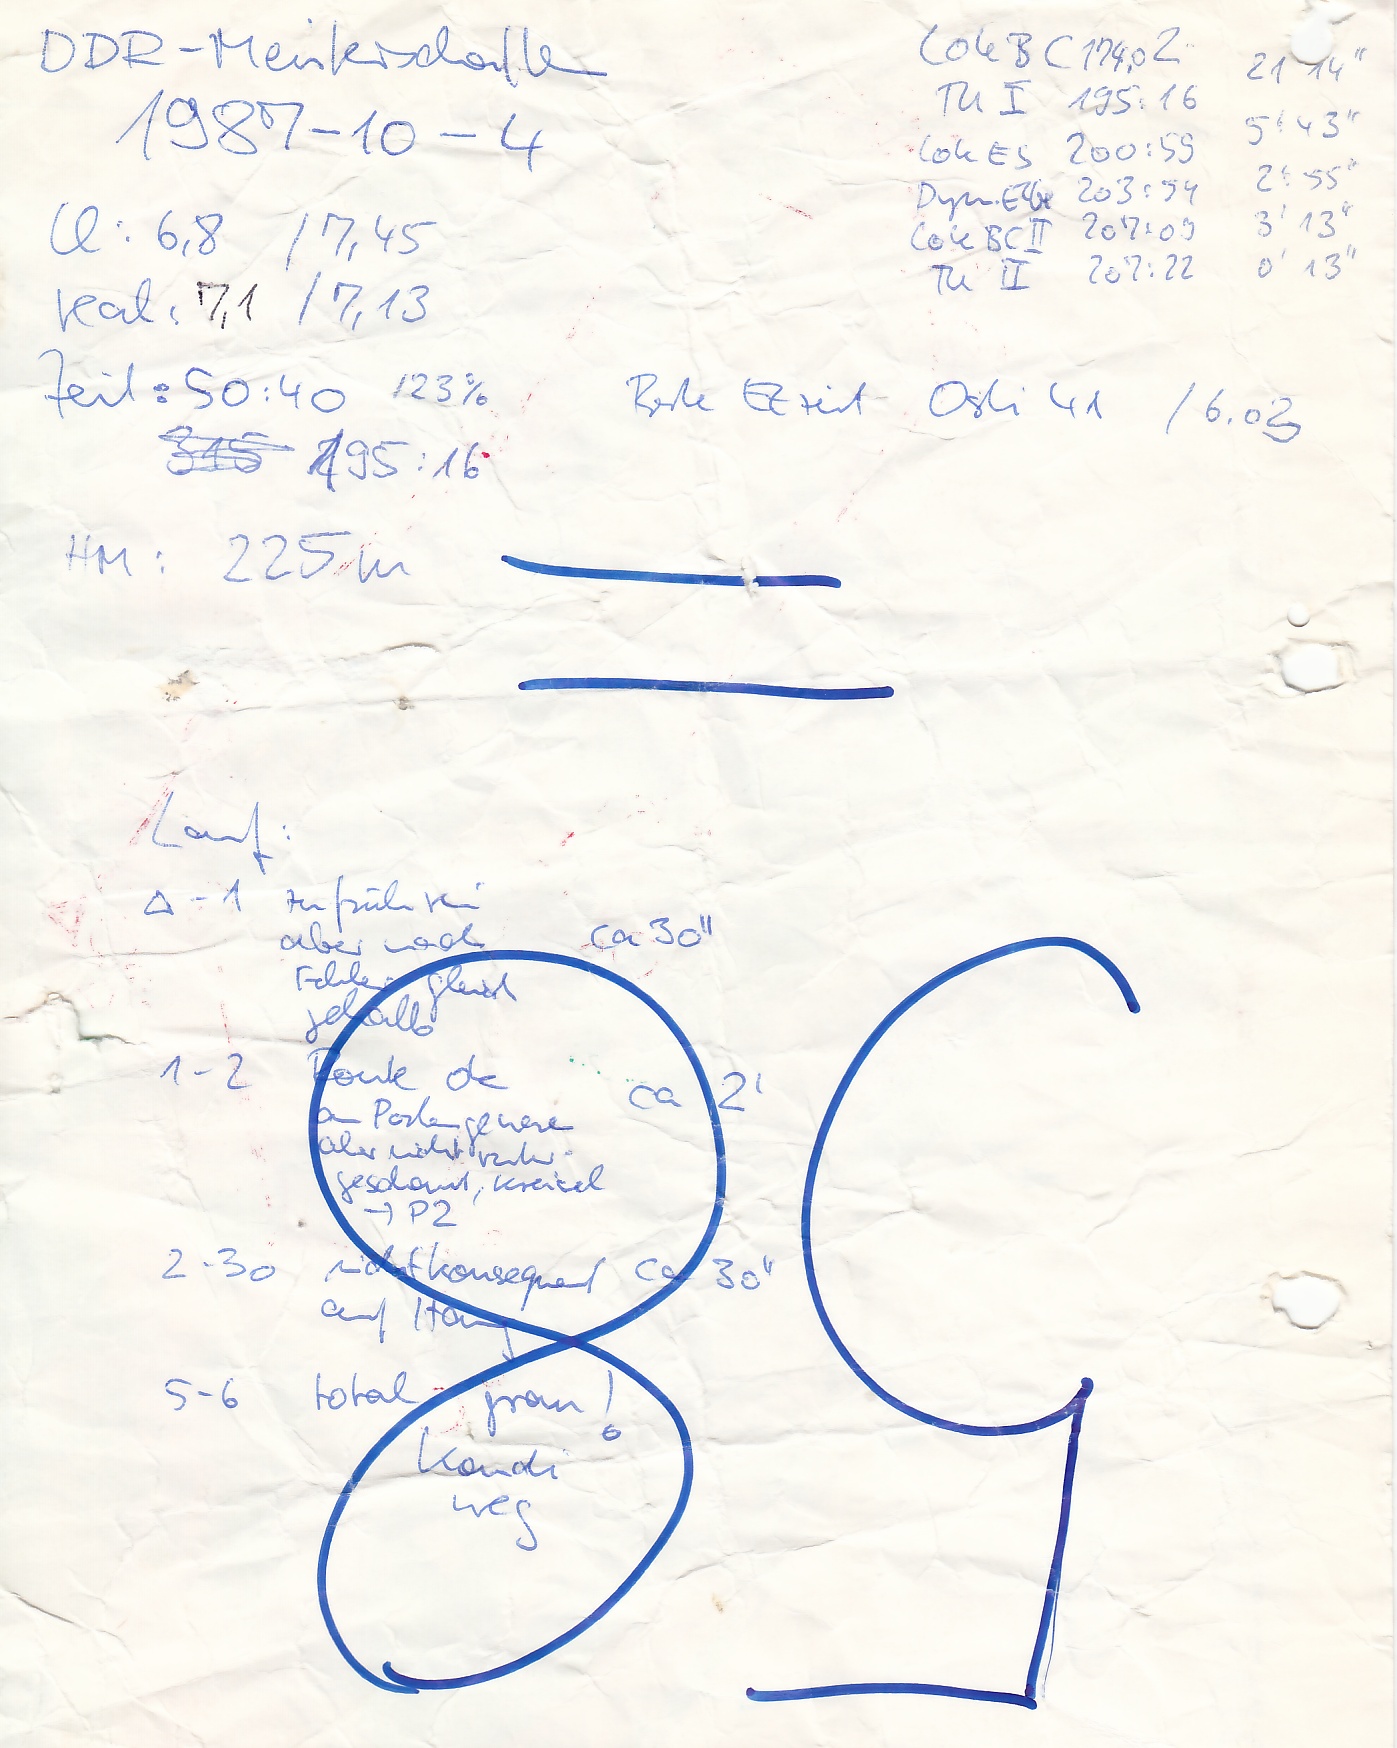 DDR-Meisterschaften
1987-10-4
Ül: 6,8 /7,45
real: 7,1 /7,13
Zeit: 50:40 123%
195:16
HM: 225m
Cole BC 174,02 21' 14"
TU I 195:16 5' 43"
Cole ES 200:59
Dyn. Elbe 203:54 2' 55"
Cole BC II 207:09 3' 13"
TU II 207:22 0' 13"
Beste EZeit Osli 41 /6.03
Lauf:
Δ-1 zu früh rein ca 30"
aber nach
Fehler gleich
geschallt
1-2 Route ok ca 2'
am Posten gewesen
aber nicht
geschaut, Kreisel
→ P2
2-30 nicht konsequent ca 30"
auf Hang
5-6 total grau!
Kondi
weg